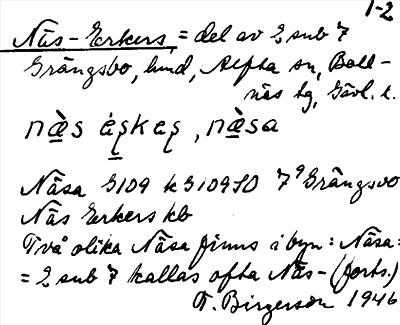 1-2
Näs-Erkers, = del av 2 sub 7
Grängsbo, hmd, Alfta sn, Boll-
näs tg, Gävl. l.
nä̀s ä́şkeş, nä̀sa
Näsa G109 k G109SO 7⁹ Grängsbo
Näs Erkers kb
Två olika Näsa finns i byn: Näsa:
= 2 sub 7 kallas ofta Näs- (forts.)
F. Birgerson 1946